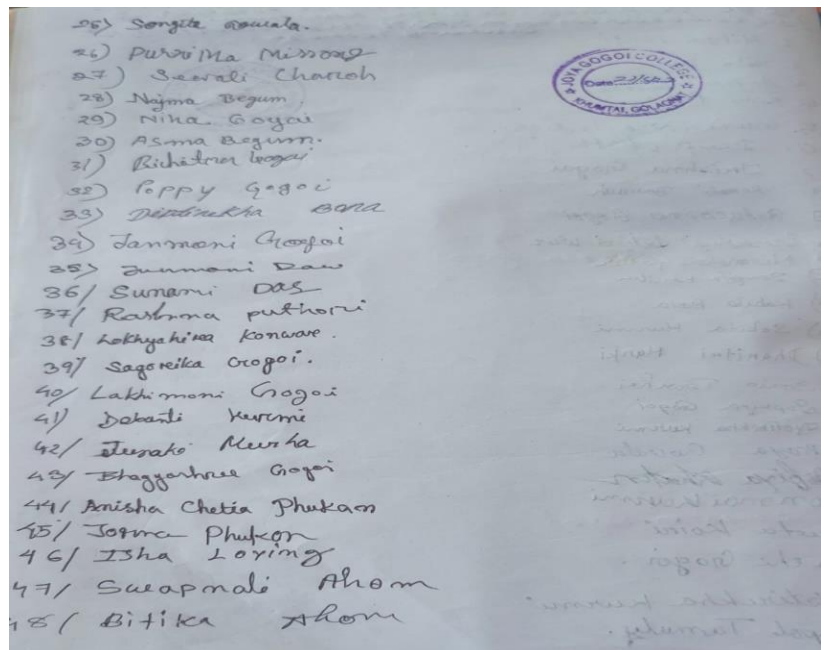 25) Songita Gowala.
26) Purnima Missong
27) Seevali Charoh
28) Najma Begum
29) Niha Gogoi
30) Asma Begum.
31) Gogoi
32) Poppy Gogoi
33) Bora
34) Janmoni Gogoi
35) Junmoni Das
36/ Sunami Das
37/ puthori
38/ Lokhyahira Konware.
39/ Sagoreika Gogoi.
40/ Lakhimoni Gogoi
41) Debanti Kurmi
42/ Junaki Mursha
43/ Bhaggashree Gogoi
44/ Anisha Chetia Phukan
45/ Phukon
46/ Isha Loying
47/ Swapnali Ahom
48/ Bitika Ahom
JOYA GOGOI COLLEGE
Date
KHUMTAI, GOLAGHAT